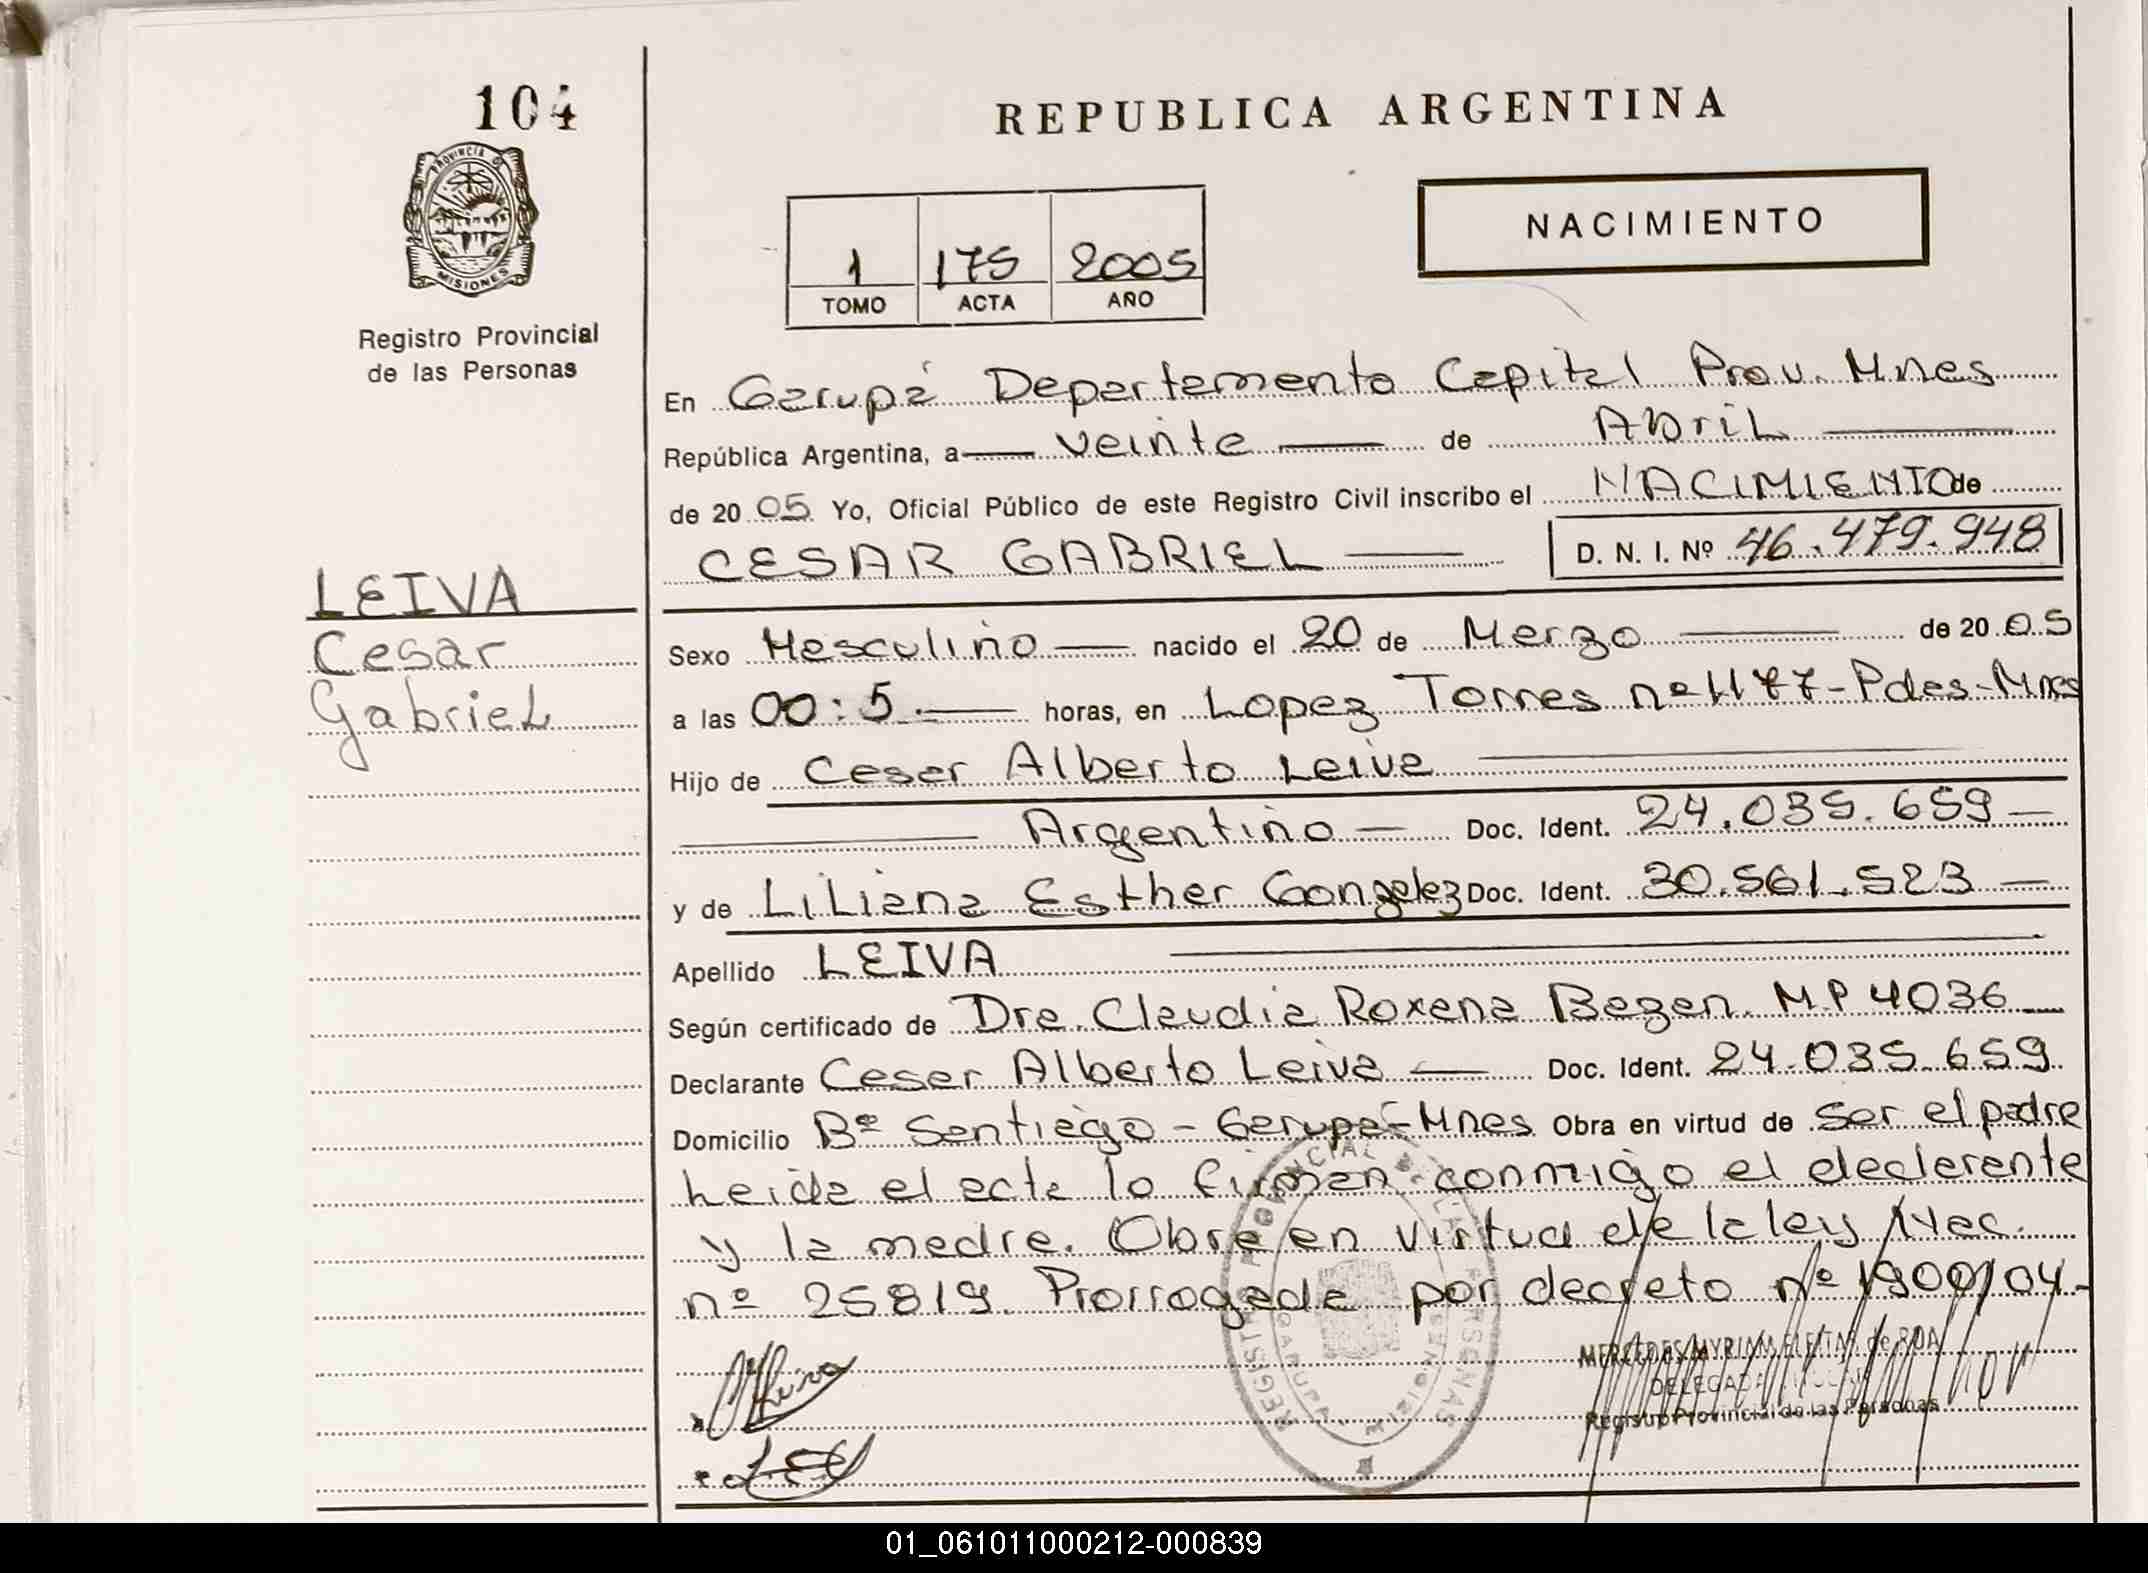 104
PROVINCIA D
MISIONES
Registro Provincial
de las Personas
REPUBLICA ARGENTINA
NACIMIENTO
1 175 2005
TOMO ACTA AÑO
En Garupá Departamento Capital Prov. Mnes
República Argentina, a veinte de Abril
de 20 05 Yo, Oficial Público de este Registro Civil inscribo el NACIMIENTO de
CESAR GABRIEL D. N. I. Nº 46.479.948
LEIVA
Cesar
Gabriel
Sexo Masculino nacido el 20 de Marzo de 20 05
a las 00:5 horas, en Lopez Torres nº 1177-Pdas-Mnes
Hijo de Cesar Alberto Leiva
Argentino Doc. Ident. 24.035.659
y de Liliana Esther Gonzalez Doc. Ident. 30.561.523
Apellido LEIVA
Según certificado de Dra. Claudia Roxana Bazan. M.P 4036
Declarante Cesar Alberto Leiva Doc. Ident. 24.035.659
Domicilio Bº Santiago - Garupá-Mnes Obra en virtud de ser el padre
Leida el acta lo firman conmigo el declarante
y la madre. Obra en virtud de la ley Nac.
nº 25819. Prorrogada por decreto nº 1900/04.-
MERCEDES MYRIAM de ROA
DELEGADA
Provincial de las Personas
01_061011000212-000839